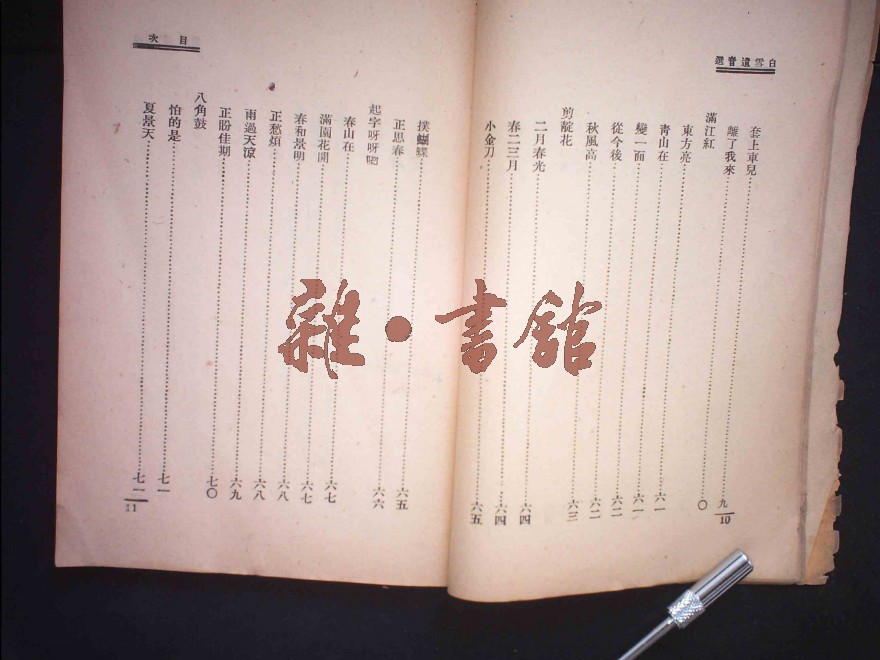 白雪遺音選
套上車兒
離了我來……九
滿江紅……〇
東方亮
青山在……六一
變一面……六一
從今後……六二
秋風高……六二
剪靛花……六三
二月春光……六四
春二三月……六四
小金刀……六五
10
目次
撲蝴蝶……六五
正思春……六六
起字呀呀喲
春山在……六七
滿園花開……六七
春和景明……六八
正愁煩……六八
雨過天涼……六九
正盼佳期……七〇
八角鼓
怕的是……七一
夏景天……七一
11
雜·書館